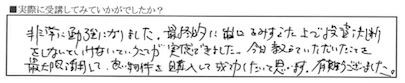 ■実際に受講してみていかがでしたか？
非常に勉強になりました。最終的に出口をみすえた上で投資決断
をしないといけないということが実感できました。今回教えていただいたことを
最大限活用して、良い物件を購入して成功したいと思います。有難うございました。